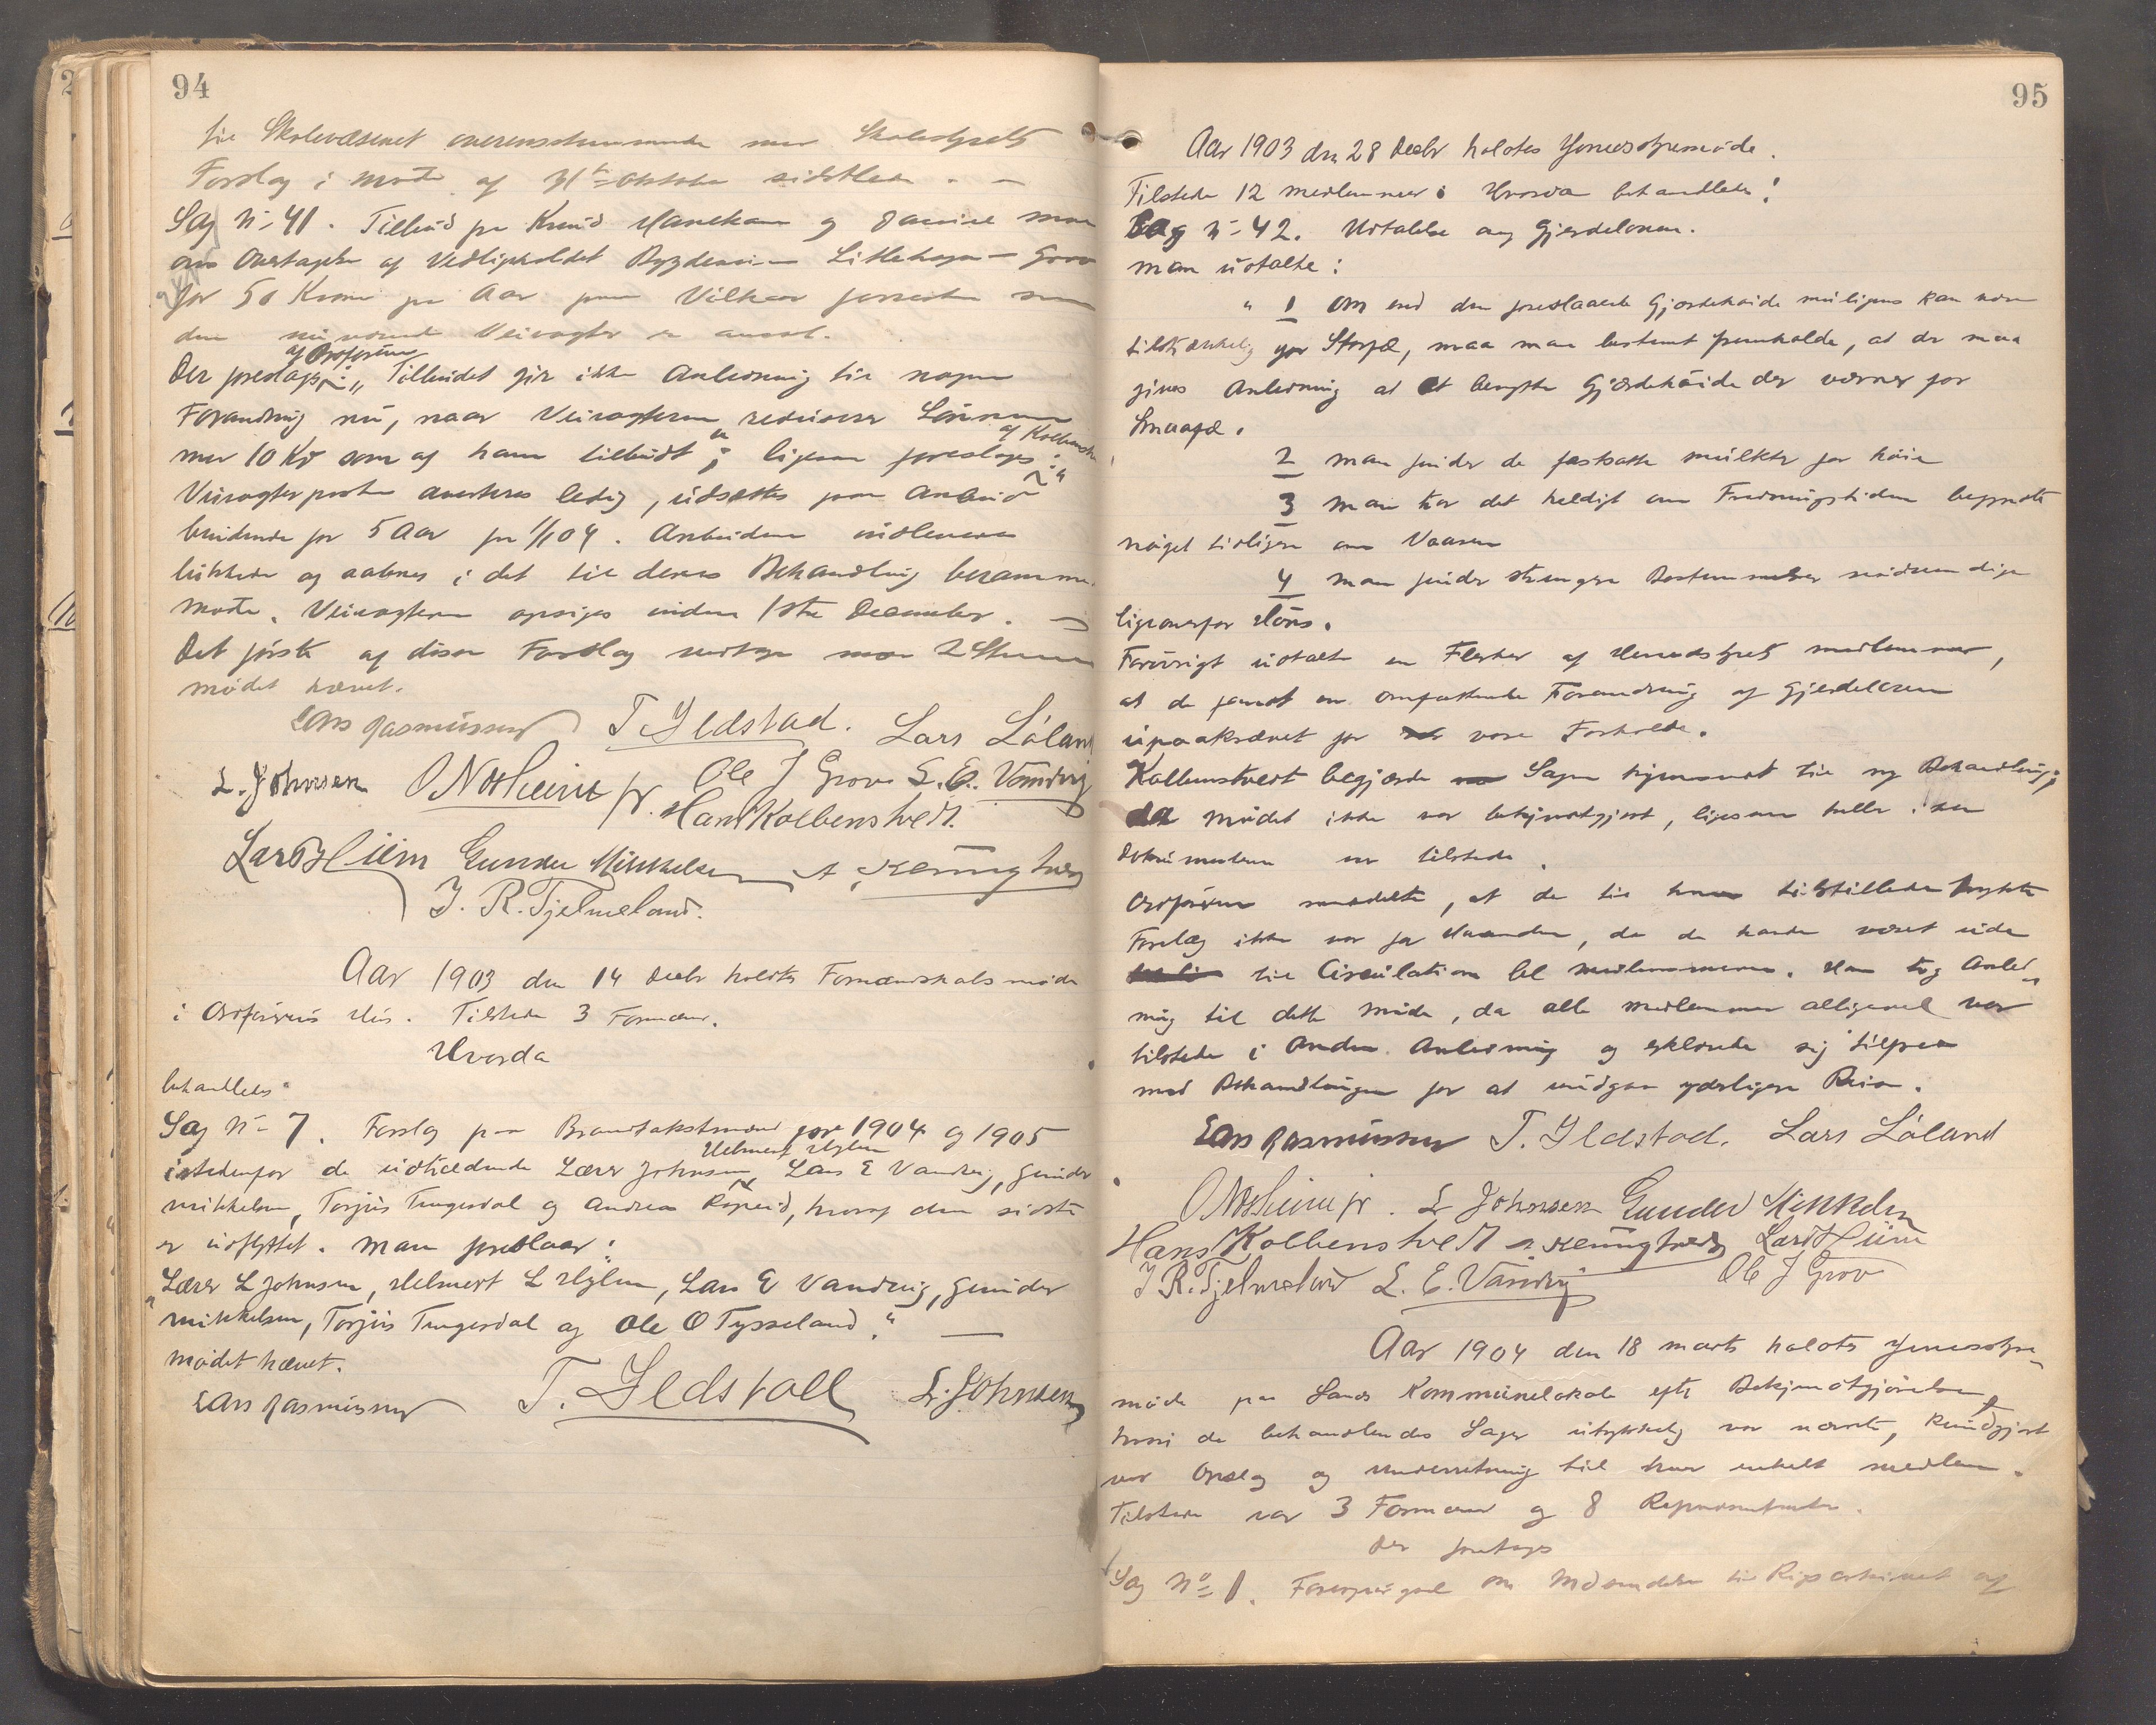 94
til Skolevæsenet overensstemmende med Skolestyrets
Forslag i møde af 31te Oktober sidstleden. —
Sag N= 41. Tilbud fra Knud og
om Overtagelse af Vedligeholdet Bygdeveien Litlehagen – Grov
for 50 Kroner pr Aar paa Vilkaar forresten som
den nuværende Veivogter er ansat.
af Ordføreren
Der foreslaaes: „Tilbudet gir ikke Anledning til nogen
Forandring nu, naar Veivogteren reducerer Lønnen
af Kolbenstvedt
med 10 Kr som af ham tilbudt"; ligesom foreslages: „
Veivogterposten averteres ledig, udsættes paa Anbud
bindende for 5 Aar fra 1/1 04. Anbudene indleveres
lukkede og aabnes i det til deres Behandling berammede
Møde. Veivogteren opsiges inden 1ste December. —
Det første af disse Forslag vedtoges mod 2 Stemmer
Mødet hævet.
Lars Rasmussen T. Ildstad. Lars Løland
L. Johnsen O Notheim jr. Ole J Grov L. E. Vandvig
Hans Kolbenstvedt.
Lars Hiim Gunder Mikkelsen A
J. R. Tjelmeland.
Aar 1903 den 14 Decbr holdtes Formandskabsmøde
i Ordførerens Hus. Tilstede 3 Formænd.
Hvorda
behandledes:
Sag N= 7. Forslag paa Brandtakstmænd for 1904 og 1905
Helmert Hylen
istedenfor de udtrædende Lærer Johnsen, Lars E Vandvig, Gunder
Mikkelsen, Torjus Tengesdal og Andreas Ropeid, hvoraf den sidste
er udflyttet. Man foreslaar:
„Lærer L Johnsen, Helmert L Hylen, Lars E Vandvig, Gunder
Mikkelsen, Torjus Tengesdal og Ole O Tysseland." —
Mødet hævet.
Lars Rasmussen T. Ildstad L. Johnsen
95
Aar 1903 den 28 Decbr holdtes Herredsstyremøde.
Tilstede 12 medlemmer. Hvorda behandledes:
Sag N= 42. Udtalelse ang Gjerdeloven.
Man udtalte:
„ 1 Om end den foreslaaede Gjærdehøide muligens kan være
tilstrækkelig for Storfæ, maa man bestemt fremholde, at der maa
gives Anledning at et benytte Gjærdehøide der værner for
Smaafæ.
2 Man finder de fastsatte mulkter for høie
3 Man tror det heldigt om Fredningstiden begyndte
noget tidligere om Vaaren
4 Man finder strengere Bestemmelser nødvendige
ligeoverfor Høns.
Forøvrigt udtalte en Flerhed af Herredsstyrets medlemmer,
at de fandt en omfattende Forandring af Gjerdeloven
upaakrævet for vore Forholde.
Kolbenstvedt begjærede Sagen hjemvendt til ny Behandling,
da mødet ikke var bekjendtgjort, ligesom heller
dokumenterne var tilstede.
Ordføreren meddelte, at de til ham tilstillede trykte
Forelæg ikke var for Haanden, da de havde været ude
til Circulation bl medlemmerne. Han tog Anled-
ning til dette møde, da alle medlemmer alligevel var
tilstede i Anden Anledning og erklærede sig tilfreds
med Behandlingen for at undgaa yderligere Reise.
Lars Rasmussen T. Ildstad. Lars Løland
O Notheim jr. L Johnsen Gunder Mikkelsen
Hans Kolbenstvedt Lars Hiim
J R. Tjelmeland L. E. Vandvig Ole J Grov
Aar 1904 den 18 Marts holdtes Herredsstyre-
møde paa Sands Kommunelokale efter Bekjendtgjørelse,
hvori de behandlendes Sager udtrykkelig var nævnte, kundgjort
ved Opslag og Underretning til hver enkelt medlem.
Tilstede var 3 Formænd og 8 Repræsentanter.
Der foretoges
Sag No 1. Forespørgsel om Indsendelse til Rigsarkivet af